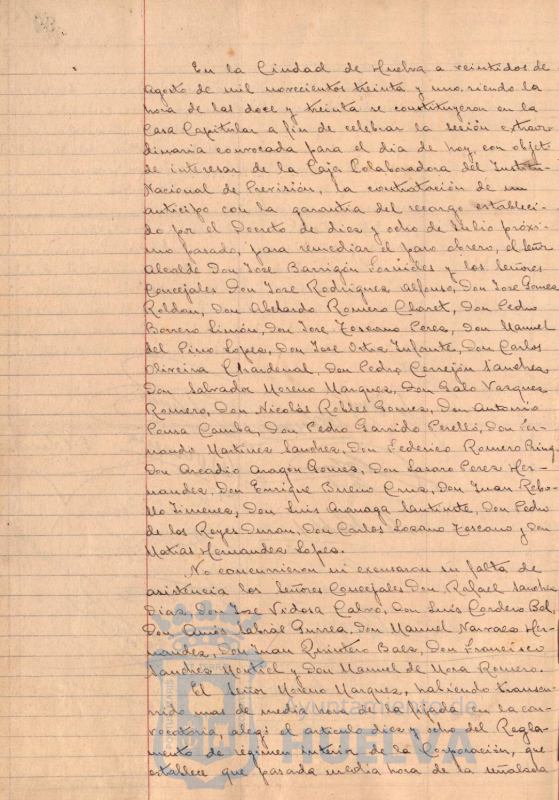 En la Ciudad de Huelva a veintidos de
agosto de mil novecientos treinta y uno, siendo la
hora de las doce y treinta se constituyeron en la
Casa Capitular a fin de celebrar la sesión extraor
dinaria convocada para el dia de hoy, con objeto
de interesar de la Caja Colaboradora del Instituto
Nacional de Previsión, la contratación de un
anticipo con la garantia del recargo estableci-
do por el Decreto de diez y ocho de Julio próxi-
mo pasado, para remediar el paro obrero, el Señor
Alcalde Don Jose Barrigón Fornieles y los Señores
Concejales Don Jose Rodriguez Alfonso, Don Jose Gomez
Roldan, Don Abelardo Romero Claret, Don Pedro
Borrero Limón, Don Jose Toscano Perea, Don Manuel
del Pino Lopez, Don Jose Ortiz Infante, Don Carlos
Oliveira Chardenal, Don Pedro Cerrejón Sanchez,
Don Salvador Moreno Marquez, Don Galo Vazquez
Romero, Don Nicolás Robles Gomez, Don Antonio
Ponce Don Pedro Garrido Perelló, Don Fer-
nando Martinez Sanchez, Don Federico Romero
Don Arcadio Aragón Gomez, Don Lazaro Perez Her-
nandez, Don Enrique Bueno Cruz, Don Juan Rebo-
llo Jimenez, Don Luis Don Pedro
de los Reyes Duran, Don Carlos Lozano Toscano y Don
Matias Hernandez Lopez.
No concurrieron ni excusaron su falta de
asistencia los Señores Concejales Don Rafael Sanchez
Diaz, Don Jose Vidosa Calvo, Don Luis Cordero Bel,
Don Amós Sabrás Gurrea, Don Manuel Narvaez Her-
nandez, Don Juan Quintero Baez, Don Francisco
Sanchez Montiel y Don Manuel de Mora Romero.
El Señor Moreno Marquez, habiendo transcu-
rrido mas de media hora de la fijada en la con-
vocatoria, alegó el articulo diez y ocho del Regla-
mento de regimen interior de la Corporación, que
establece que pasada media hora de la señalada
Ayuntamiento de
HUELVA